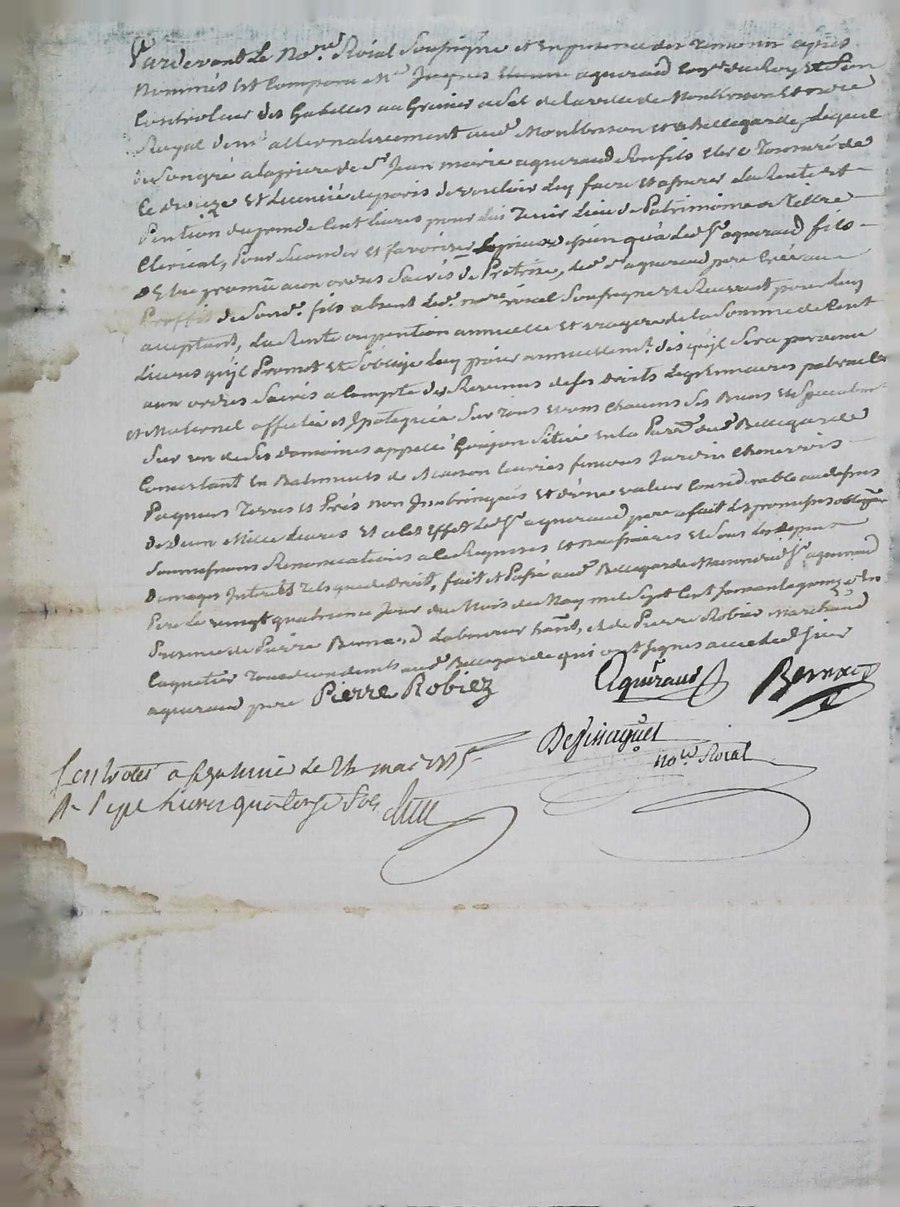 Pardevant Le No.re Roial Soussigné et En presence des temoins apres
Nommés Est Comparu M.e Jacques aguiraud Con.er du Roy Et Son
Controlleur des Gabelles au Grenier a Sel de la ville de
Royal alternativement aud. Montbrison et a Bellegarde, Lequel
de Son gré a la priere de S.r Jean marie aguiraud Son fils Clerc Tonsuré de
Ce Et de vouloir Luy faire Et assurer La Rente Et
Pention de Cent Livres pour Luy Tenir Lieu de Patrimoine ou Tiltre
Clerical, Pour Seconder et favoriser Le pieux Le S.r aguiraud fils
D'Etre promû aux ordres Sacrés de Prétrise, Le d. S.r aguiraud pere Crée au
Proffit de Son d. fils absent Led. no.re roial Soussigné Et Recevant pour Luy
acceptant, La Rente ou pention annuelle et viagere de la Somme de Cent
Livres qu'il Promet et S'oblige Luy païer annuellem.t dès qu'il Sera parvenu
aux ordres Sacrés a Compte des Revenus de Ses droits Legitimaires paternel
et Maternel affectée et Ipotequée Sur tous et uns Chacuns Ses Biens Et Specialem.t
Sur un de Ses domaines appellé Goujon Situé En La Par.sse dud. Bellegarde
Consistant En Batiments de Maison Ecuries fenieres Jardin Chenevier
Paquiers Terres et Prés non Et d'une valeur Considerable au dessus
De deux Mille Livres Et a cet Effet Le S.r aguiraud pere a fait Les promesses obligaõns
Soumissions Renonciations a ce Requises et necessaires et Sous Les Depens
Domages Interêts Tels que de Droit, fait et Passé aud. Bellegarde Maison dud. S.r aguiraud
Pere Le vingt quatrieme Jour du Mois de May mil Sept Cent Soixante quinze En
Presence de Pierre Bernard Laboureur et de Pierre Robiez Marchand
Coquetier Tous deux demts aud. Bellegarde qui ont Signés avec Led. Sieur
aguiraud pere Pierre Robiez Aguiraud Bernard
no.re Roial
Controlé a le 24 mai 1775
R. Sept Livres quatorze Sols